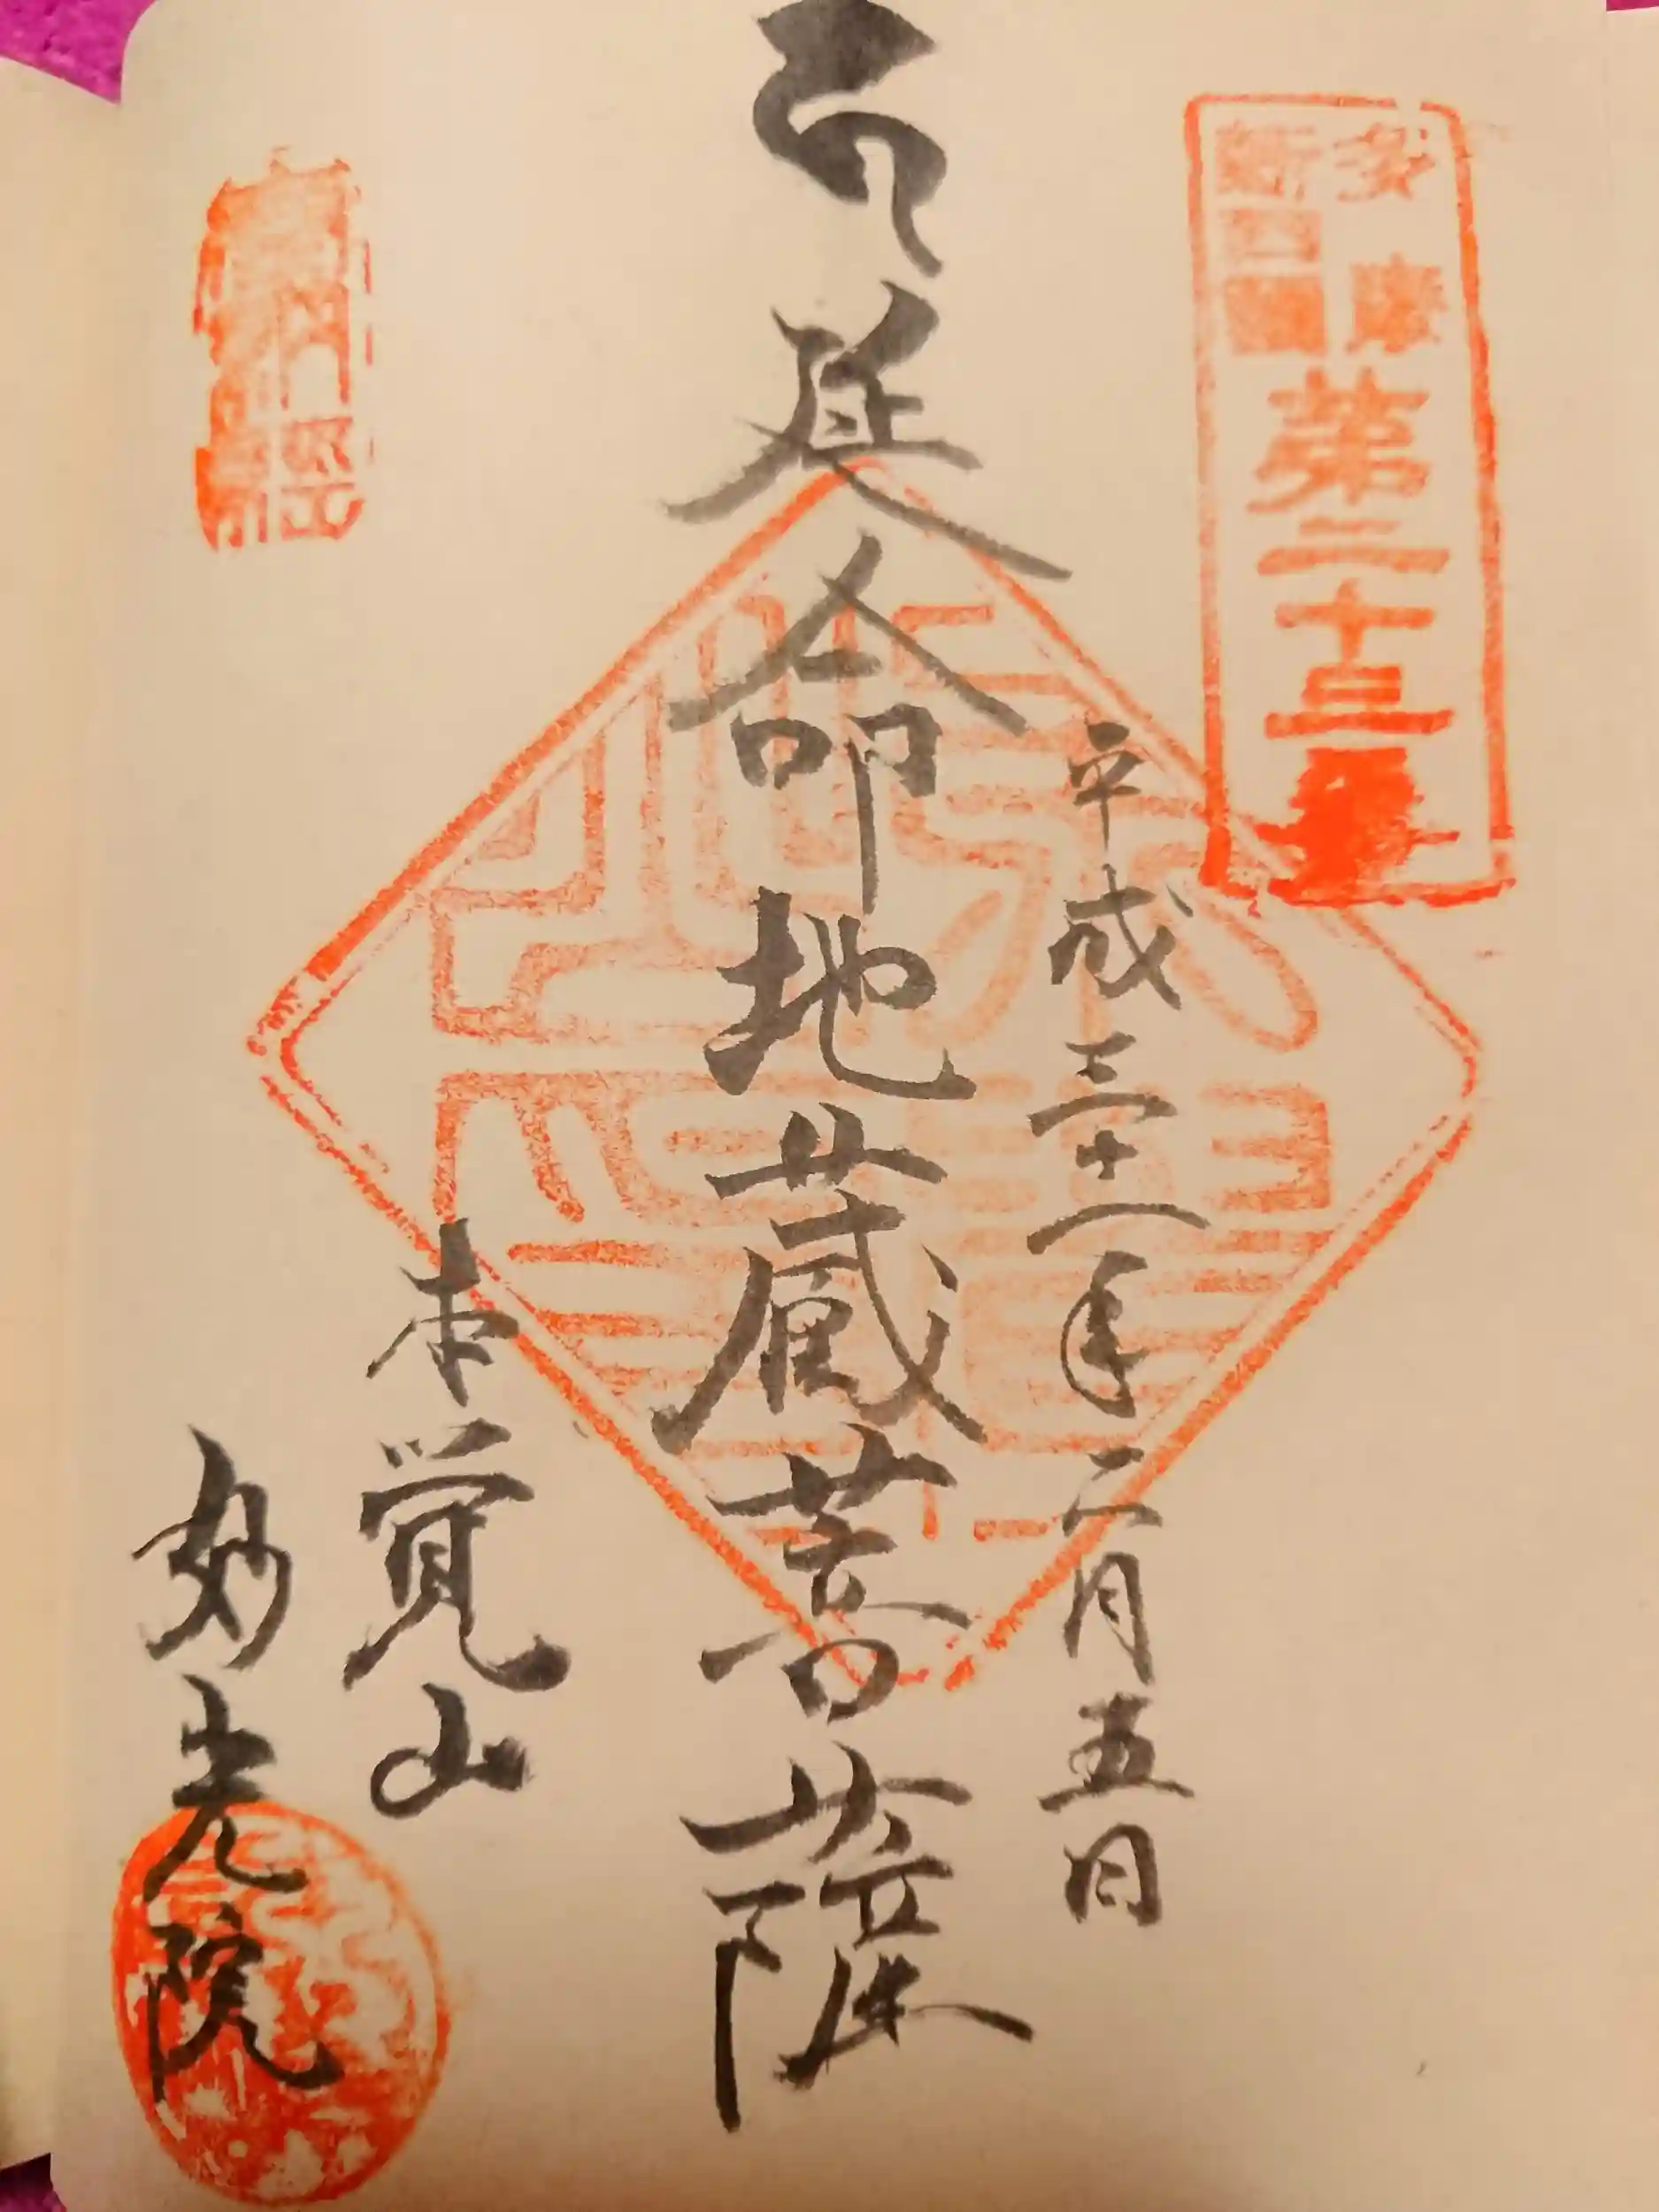 多摩
新四国
第二十三番
平成三十一年二月五日
延命地蔵菩薩
本覚山
妙光院